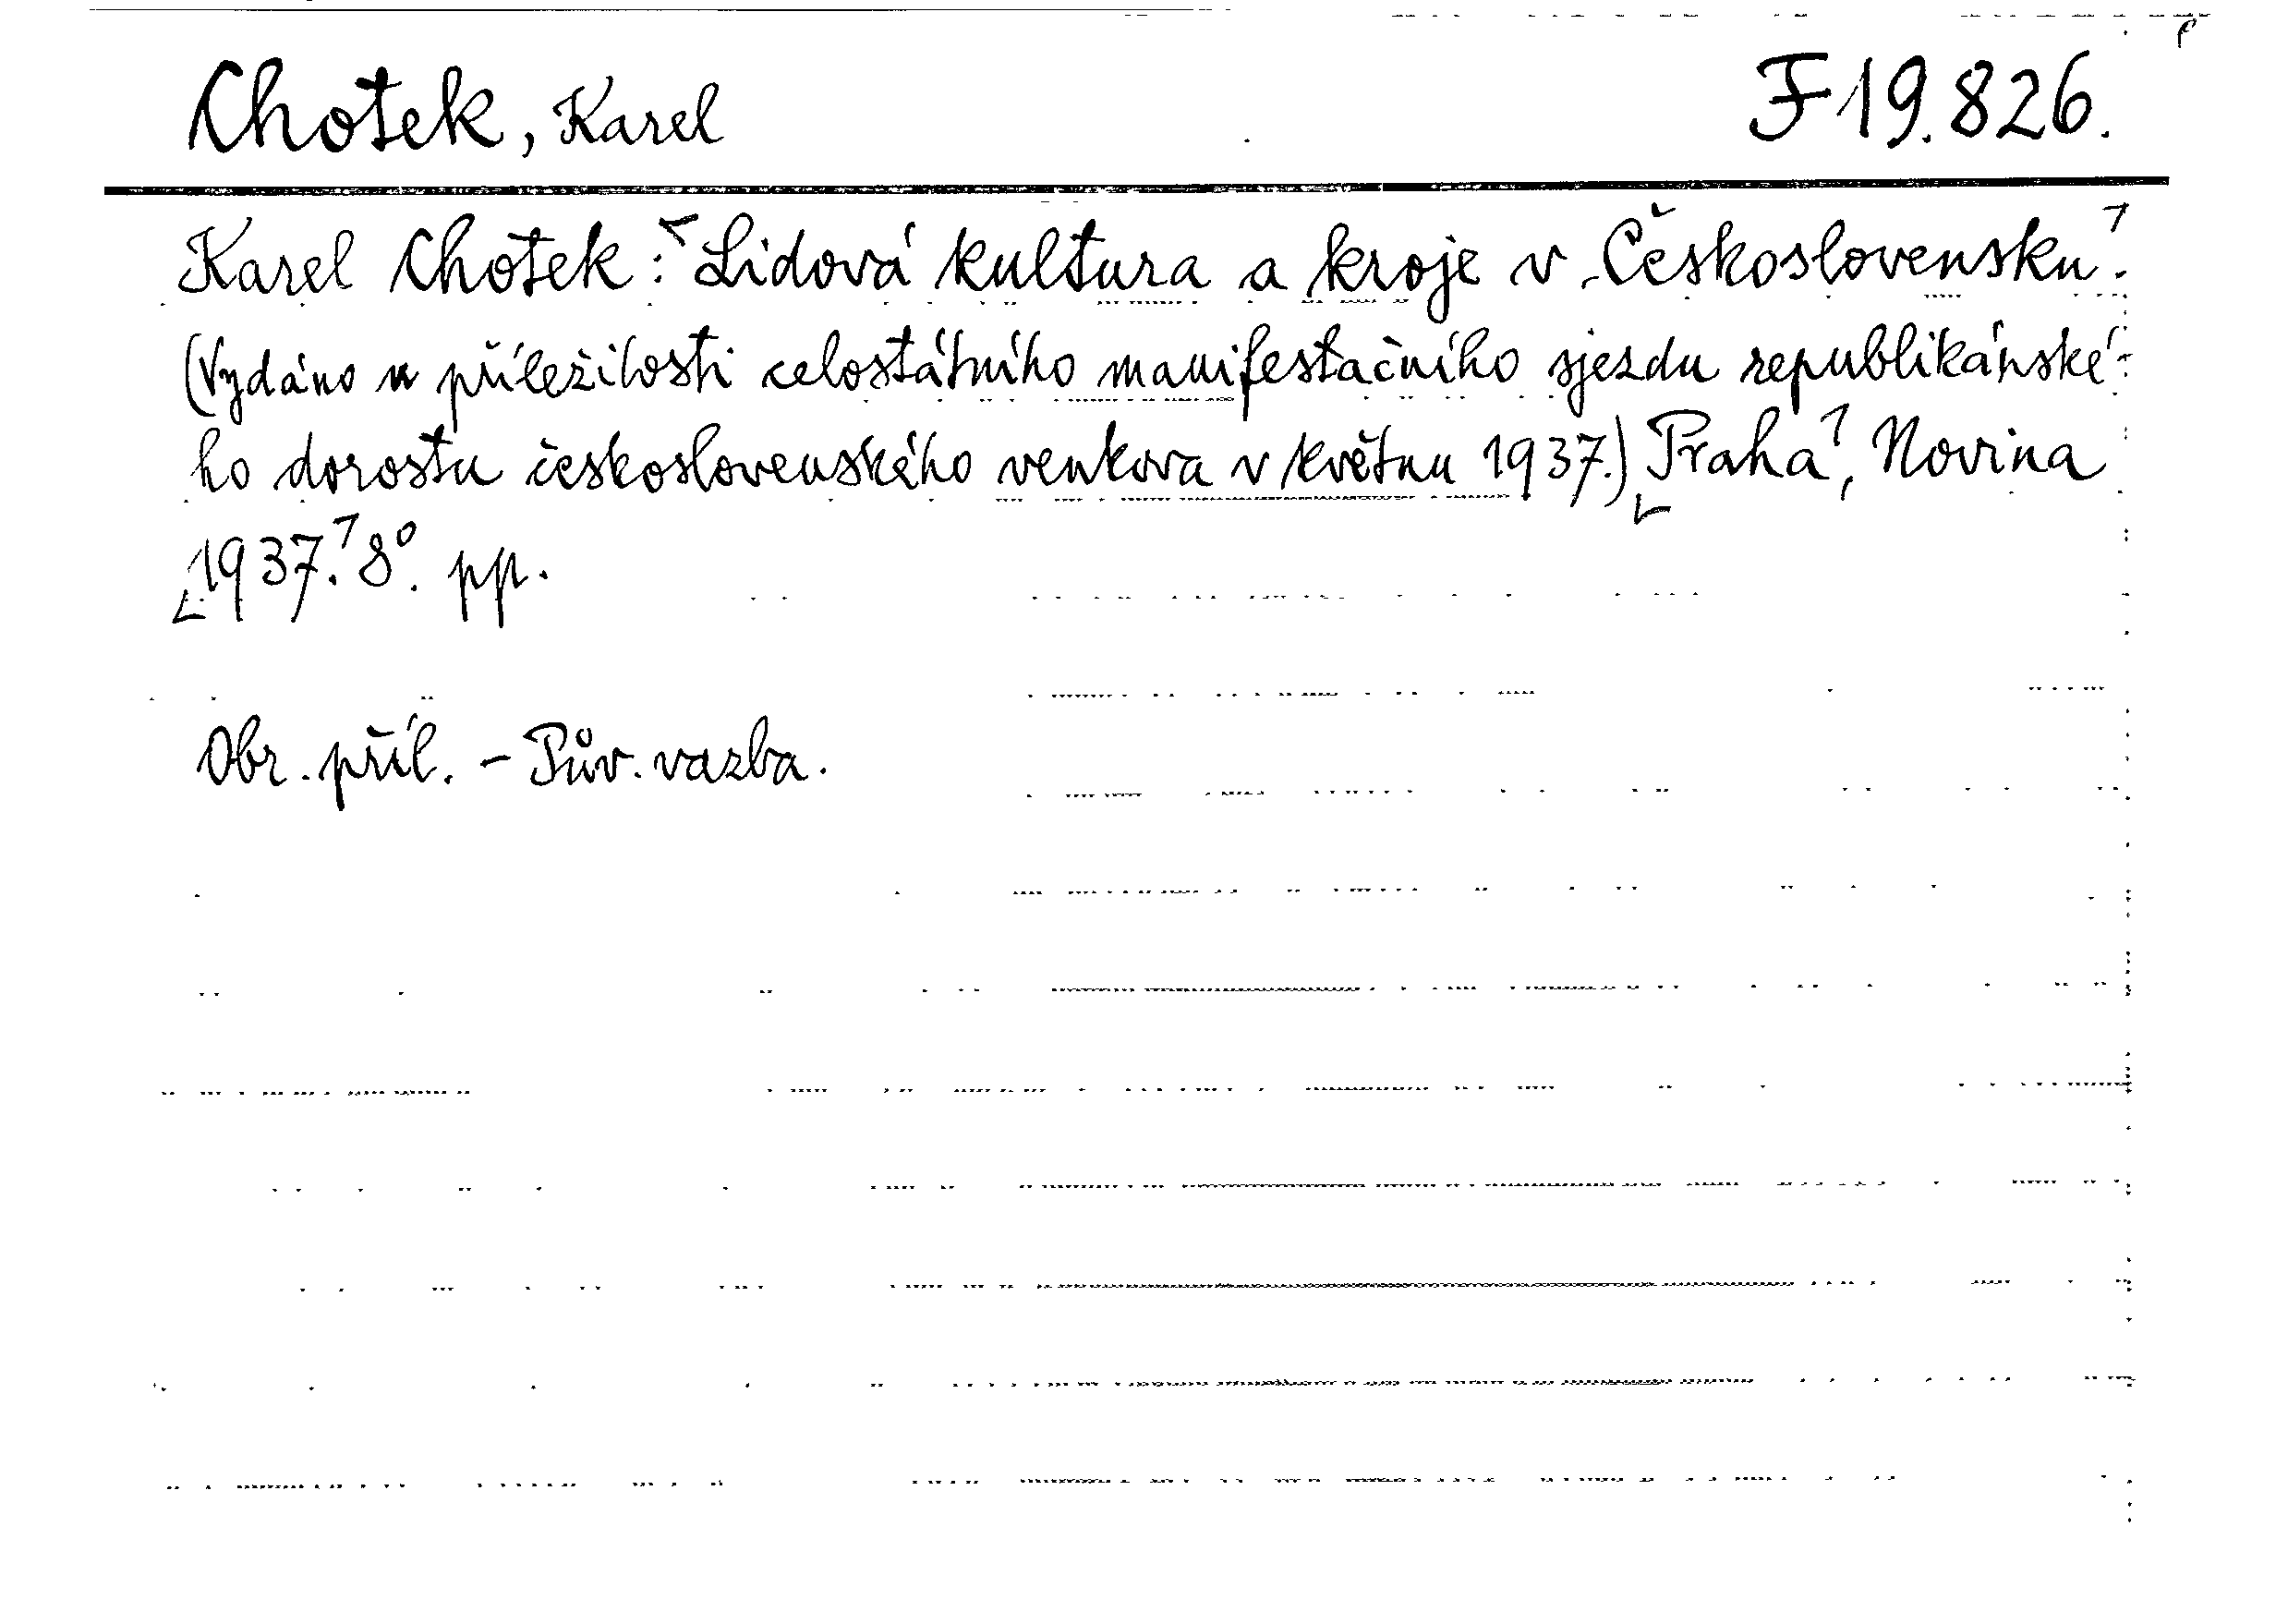 Chotek, Karel F 19.826.
Karel Chotek: Lidová kultura a kroje v Československu.
(Vydáno u příležitosti celostátního manifestačního sjezdu republikánské-
ho dorostu československého venkova v květnu 1937.) Praha, Novina
1937. 8°. pp.
Obr. příl. - Pův. vazba.